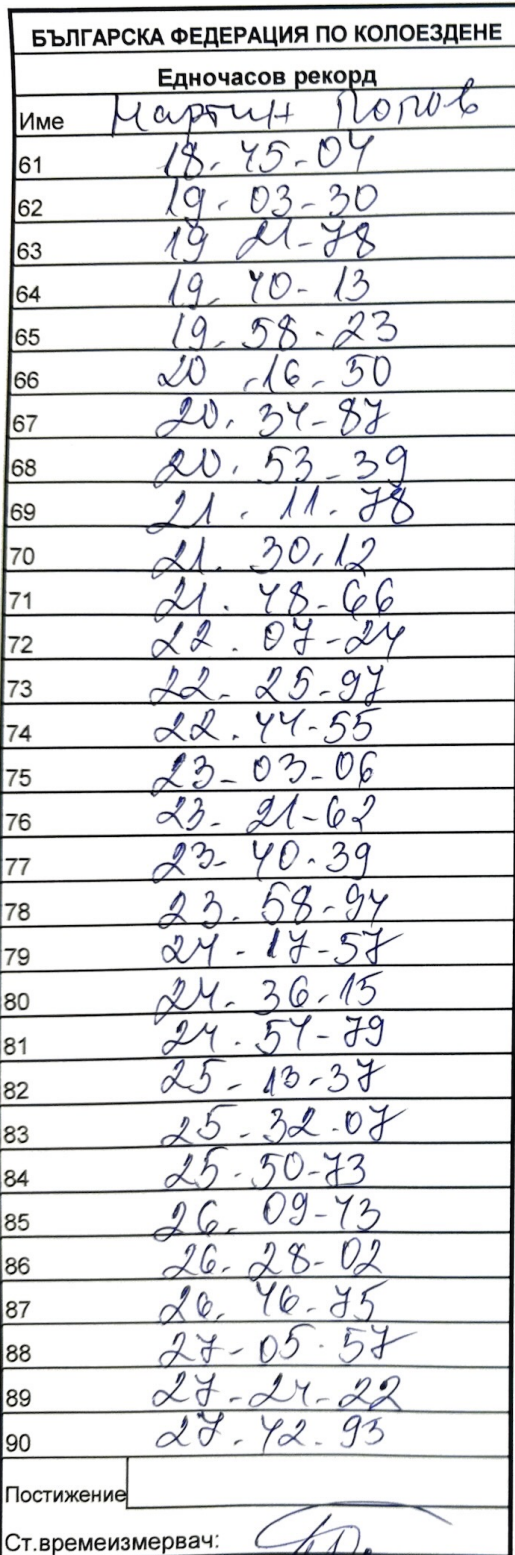 БЪЛГАРСКА ФЕДЕРАЦИЯ ПО КОЛОЕЗДЕНЕ
Едночасов рекорд
Име Мартин Попов
61 18.45-04
62 19.03-30
63 19 21-78
64 19.40-13
65 19.58-23
66 20.16.50
67 20.34-87
68 20.53-39
69 21.11.78
70 21.30.12
71 21.48-66
72 22.07-24
73 22-25-97
74 22.44-55
75 23-03-06
76 23-21-62
77 23-40.39
78 23.58-94
79 24-17-57
80 24.36.15
81 24.54-79
82 25-13-37
83 25-32.07
84 25.50-73
85 26.09-43
86 26.28-02
87 26.46-75
88 27-05.57
89 27-24-22
90 27.42-93
Постижение
Ст.времеизмервач: